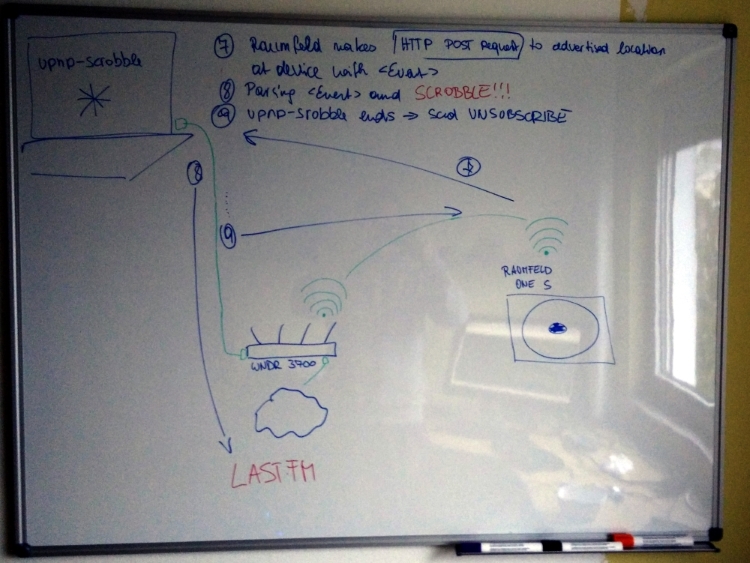 upnp-scrobble
⑦ Raumfeld makes HTTP POST request to advertised location
at device with <Event>
⑧ Parsing <Event> and SCROBBLE!!!
⑨ upnp-srobble ends → send UNSUBSCRIBE
⑦
⑧
⑨
RAUMFELD
ONE S
WNDR 3700
LAST.FM